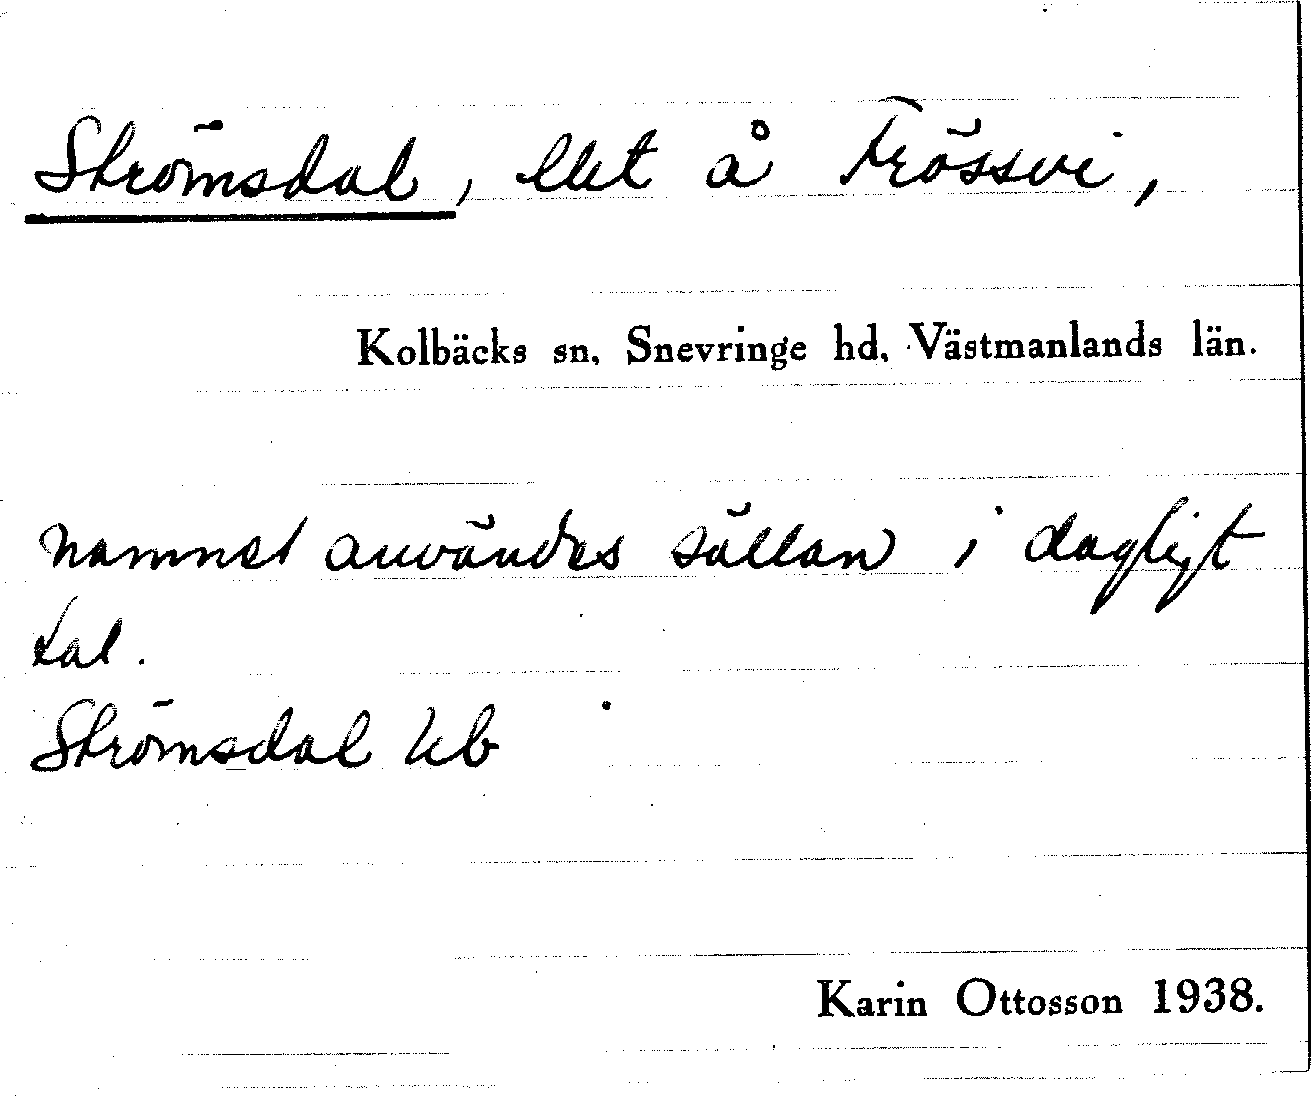 Strömsdal, lht å Frössvi,
Kolbäcks sn, Snevringe hd, Västmanlands län.
Namnet användes sällan i dagligt
tal.
Strömsdal Ub
Karin Ottosson 1938.